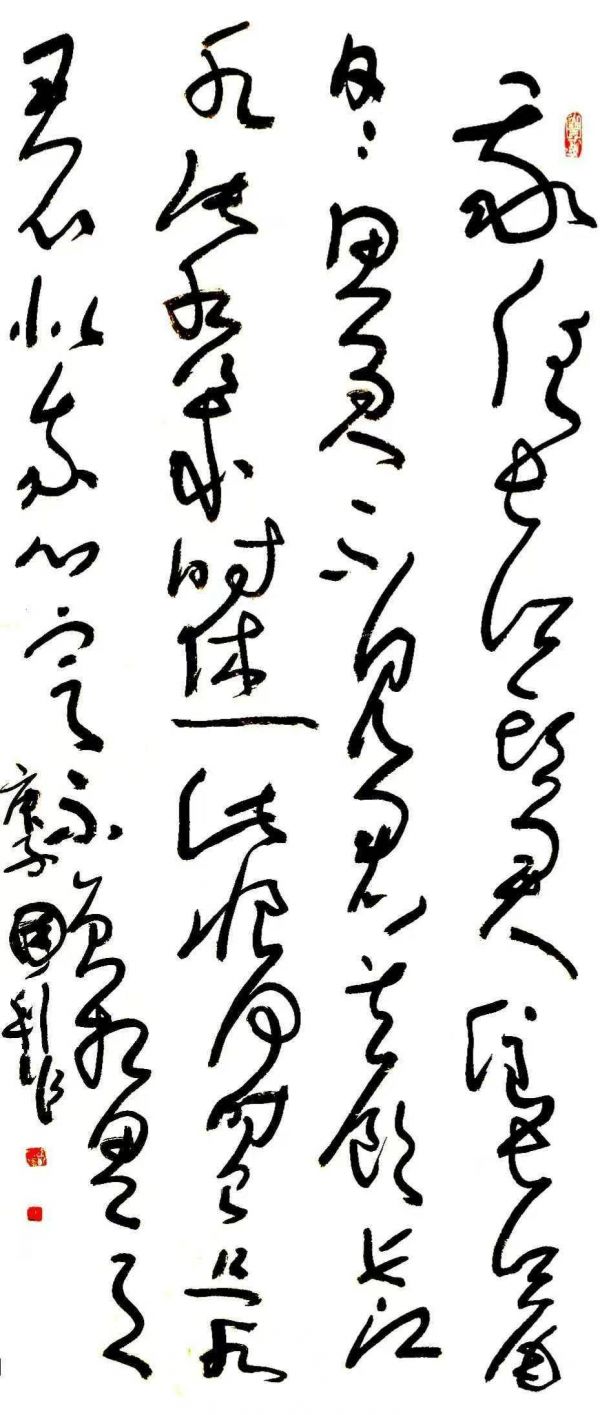 我住长江头君住长江尾
日〻思君不见君共饮长江
水此水幾时休此恨何时已只愿
君心似我心定不负相思意
庚子國利